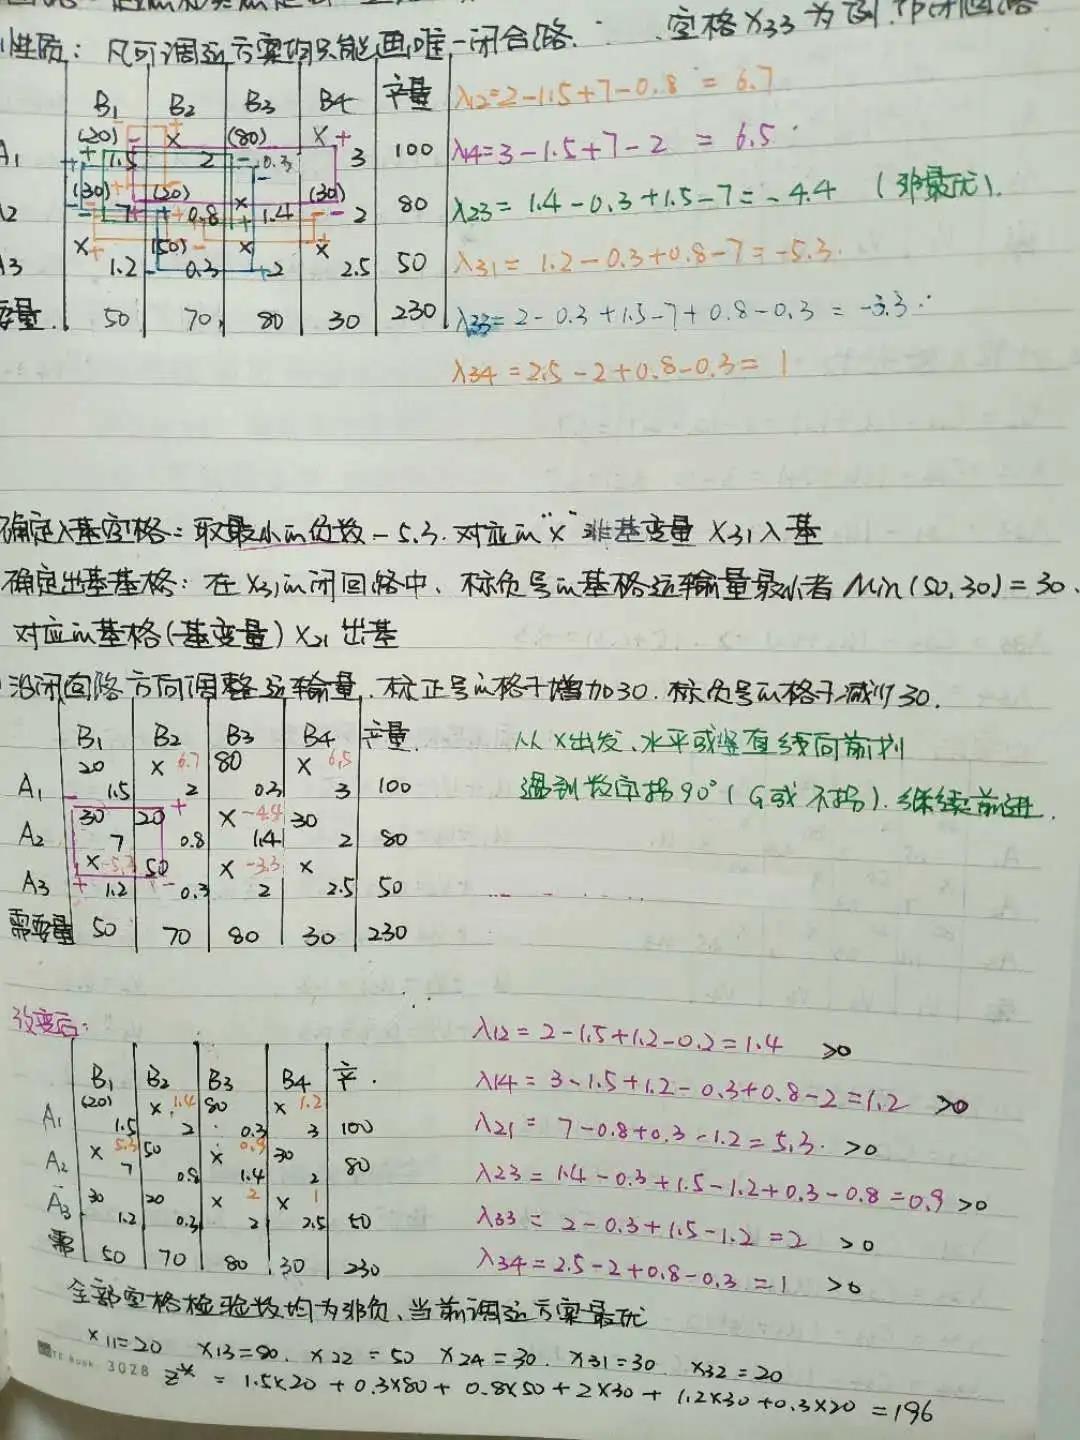 性质：凡可调运方案均只能画唯一闭合路. 空格X33为例.
B1 B2 B3 B4 产量 λ12=2-1.5+7-0.8 = 6.7
(20) - × (80) × +
A1 + 1.5 2 - 0.3 3 100 λ14=3-1.5+7-2 = 6.5
(30) (20) × (30)
2 7 0.8 1.4 2 80 λ23= 1.4-0.3+1.5-7=-4.4 (非最优).
× (50) × ×
3 1.2 0.3 2 2.5 50 λ31= 1.2-0.3+0.8-7=-5.3.
量 50 70 80 30 230 λ33=2-0.3+1.5-7+0.8-0.3=-3.3
λ34=2.5-2+0.8-0.3= 1
确定入基空格：取最小的负数-5.3. 对应的"×"非基变量 X31入基
确定出基基格：在X31的闭回路中、标负号的基格运输量最小者 Min(50,30)=30、
对应的基格(基变量) X21 出基
沿闭回路方向调整运输量. 标正号的格子增加30. 标负号的格子减少30.
B1 B2 B3 B4 产量. 从×出发、水平或竖直线向前划
20 × 6.7 80 × 6.5
A1 - 1.5 2 0.3 3 100 遇到数字拐90°(G或不拐). 继续前进.
30 20 + × -4.4 30
A2 7 0.8 1.4 2 80
× -5.3 50 × -3.3 ×
A3 + 1.2 - 0.3 2 2.5 50
需要量 50 70 80 30 230
改变后：
λ12=2-1.5+1.2-0.2=1.4 >0
B1 B2 B3 B4 产. λ14= 3-1.5+1.2-0.3+0.8-2=1.2 >0
(20) × 1.4 80 × 1.2
A1 1.5 2 0.3 3 100 λ21= 7-0.8+0.3-1.2=5.3. >0
× 5.3 50 × 0.9 30
A2 7 0.8 1.4 2 80 λ23= 1.4-0.3+1.5-1.2+0.3-0.8=0.9 >0
30 20 × 2 × 1
A3 1.2 0.3 2 2.5 50 λ33= 2-0.3+1.5-1.2=2 >0
需 50 70 80 30 230 λ34=2.5-2+0.8-0.3=1 >0
全部空格检验数均为非负、当前调运方案最优
X11=20 X13=80. X22=50 X24=30. X31=30 X32=20
3028 Z* = 1.5×20+0.3×80+0.8×50+2×30+1.2×30+0.3×20=196